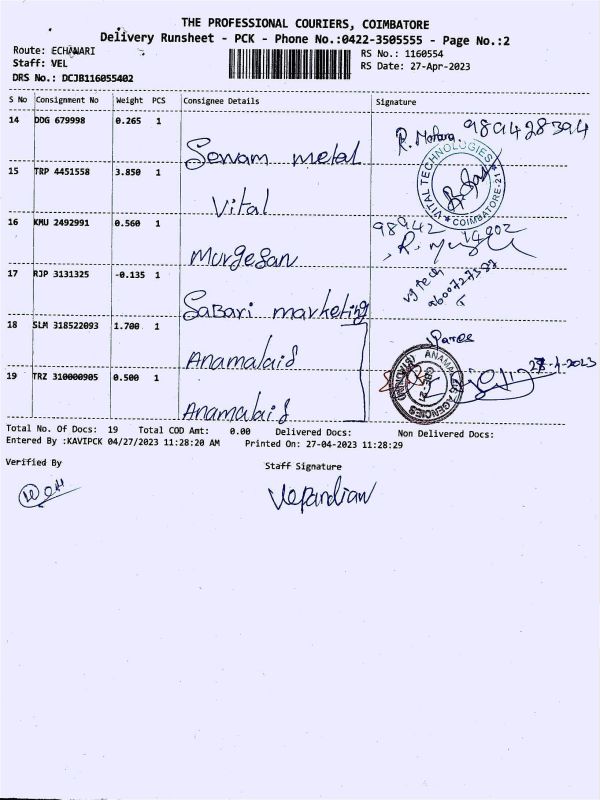 THE PROFESSIONAL COURIERS, COIMBATORE
Delivery Runsheet - PCK - Phone No.:0422-3505555 - Page No.:2
Route: ECHANARI
RS No.: 1160554
Staff: VEL
RS Date: 27-Apr-2023
DRS No.: DCJB116055402
S No Consignment No Weight PCS Consignee Details Signature
14 DDG 679998 0.265 1
R. Mohana 989428394
Sewam metal
15 TRP 4451558 3.850 1
VITAL TECHNOLOGIES COIMBATORE-21
Vital
16 KMU 2492991 0.560 1
98942 14002
Murgesan
17 RJP 3131325 -0.135 1
vg tech
Sabari marketing
18 SLM 318522093 1.700 1
Anamalaid
27-4-2023
ANAMALAI AGENCIES
19 TRZ 310000905 0.500 1
Anamalaid
Total No. Of Docs: 19 Total COD Amt: 0.00 Delivered Docs: Non Delivered Docs:
Entered By :KAVIPCK 04/27/2023 11:28:20 AM Printed On: 27-04-2023 11:28:29
Verified By
Staff Signature
Velpandian